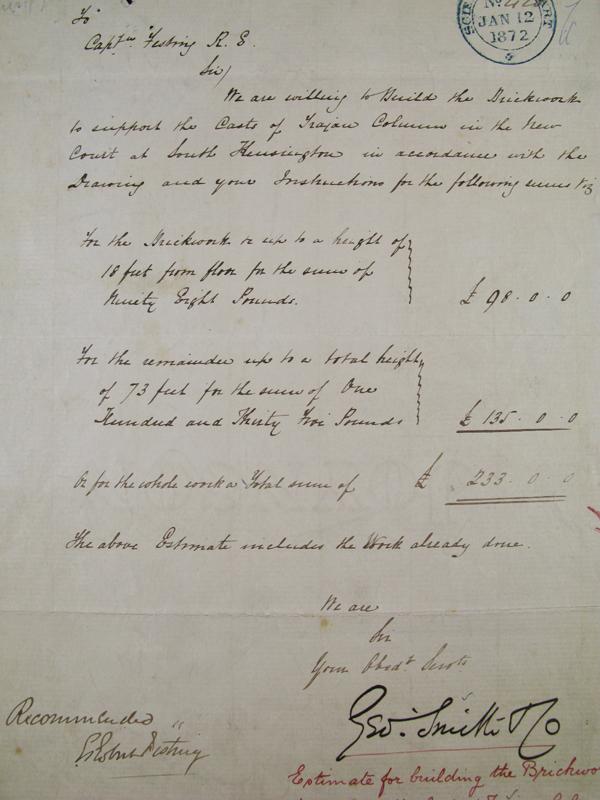 To
Captn Festing R. E.
Sir/
We are willing to Build the Brickwork
to support the Casts of Trajan Column in the New
Court at South Kensington in accordance with the
Drawing and your Instructions for the following sums viz
For the Brickwork up to a height of
18 feet from floor for the sum of
Ninety Eight Pounds.
£ 98 . 0 . 0
For the remainder up to a total height
of 73 feet for the sum of One
Hundred and Thirty Five Pounds
£ 135 . 0 . 0
Or for the whole work a Total sum of £ 233 . 0 . 0
The above Estimate includes the Work already done.
We are
Sir
Your Obedt Servts
Geo. Smith & Co
Recommended
Festing
Estimate for building the Brickwo
JAN 12
1872